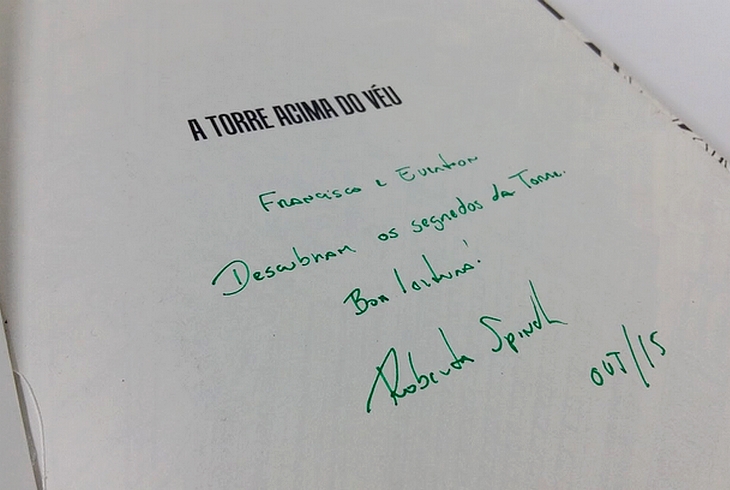 A TORRE ACIMA DO VÉU
Francisco e Everton
Descubram os segredos da Torre.
Boa leitura!
Roberta Spindler
OUT/15